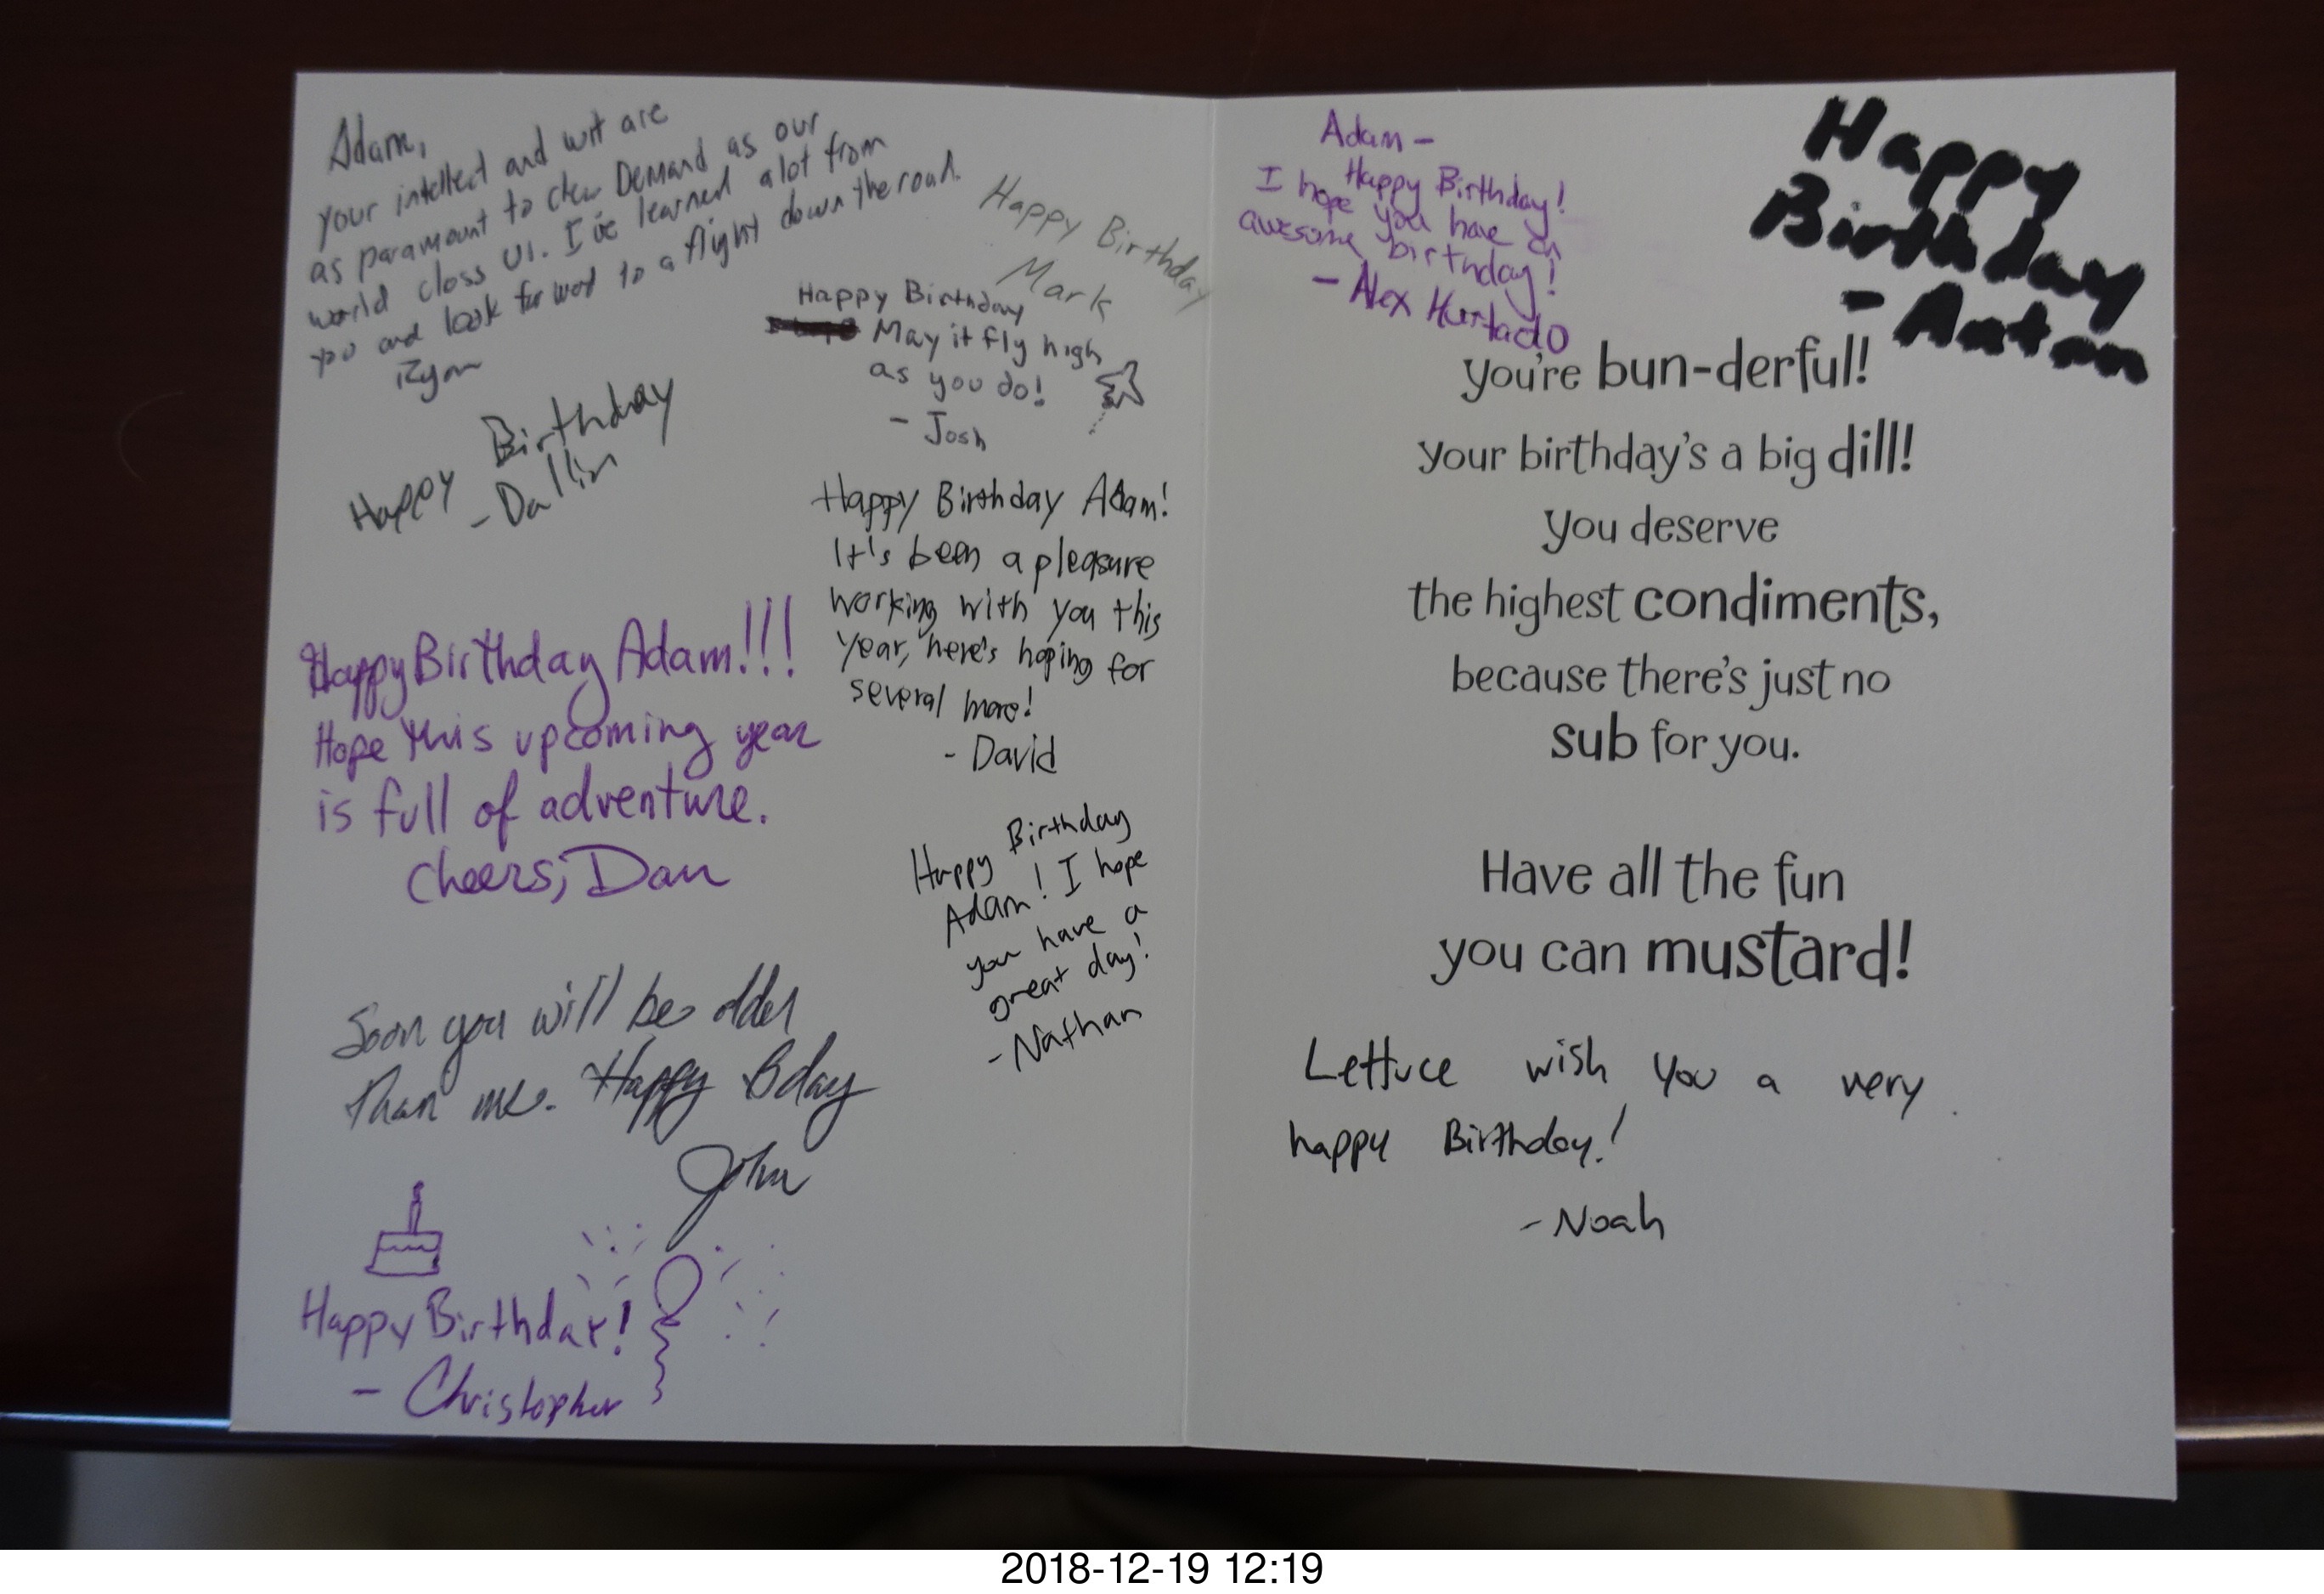 Adam,
your intellect and wit are
as paramount to Crew Demand as our
world class UI. I've learned a lot from
you and look forward to a flight down the road.
Ryan
Happy Birthday
Mark
Happy Birthday
May it fly high
as you do!
- Josh
Happy Birthday
- Dallin
Happy Birthday Adam!
It's been a pleasure
working with you this
year, here's hoping for
several more!
- David
Happy Birthday Adam!!!
Hope this upcoming year
is full of adventure.
Cheers, Dan
Happy Birthday
Adam! I hope
you have a
great day!
- Nathan
Soon you will be older
Than me. Happy Bday
John
Happy Birthday!
- Christopher
Adam -
Happy Birthday!
I hope you have an
awesome birthday!
- Alex Hurtado
Happy
Birthday
- Anton
you're bun-derful!
your birthday's a big dill!
you deserve
the highest condiments,
because there's just no
sub for you.
Have all the fun
you can mustard!
Lettuce wish you a very
happy Birthday!
- Noah
2018-12-19 12:19